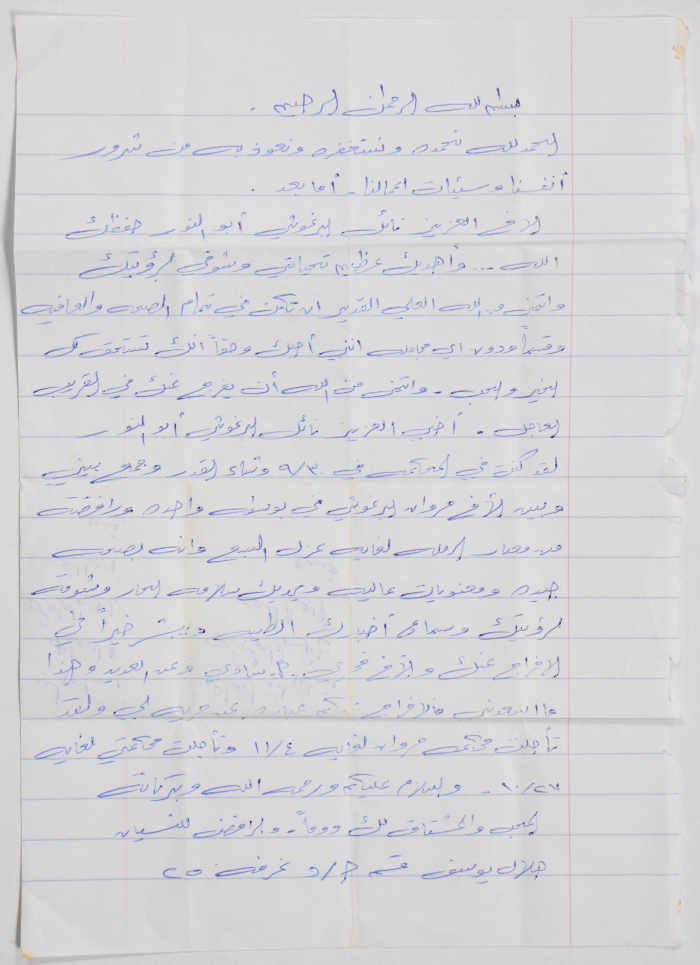 بسم الله الرحمن الرحيم .
الحمد لله نحمده ونستغفره ونعوذ به من شرور
أنفسنا وسيئات اعمالنا - أما بعد .
الاخ العزيز نائل البرغوثي أبو النور حفظك
الله ... وأهديك عظيم تحياتي وشوقي لرؤيتك
واتمنى من الله العلي القدير ان تكن في تمام الصحه والعافيه
وقسماً ودون اي مجامله انني أحبك وحقاً انك تستحق كل
الخير والحب - واتمنى من الله أن يفرج عنك في القريب
العاجل - أخي العزيز نائل البرغوثي أبو النور
لقد كنت في المحكمه في ٩/٣٠ وشاء القدر وجمع بيني
وبين الأخ مروان البرغوثي في بوسطه واحده ورافقته
من معبار الرمله لغاية عزل السبع وانه بصحه
جيده ومعنويات عاليه ويهديك سلامه الحار وشوقه
لرؤيتك وسماع أخبارك الطيبه ويبشر خيراً في
الافراج عنك والأخ فخري وعن العديد وهذا
ما اسعدني فالافراج عنكم لي ولقد
تأجلت محكمه مروان لغاية ١١/٤ وتأجلت محكمتي لغاية
١٠/٢٣ - والسلام عليكم ورحمه الله وبركاته
المحب والمشتاق لك دوماً - والرافض للنسيان
هلال يوسف قسم ٥/ج غرفه ٢٥